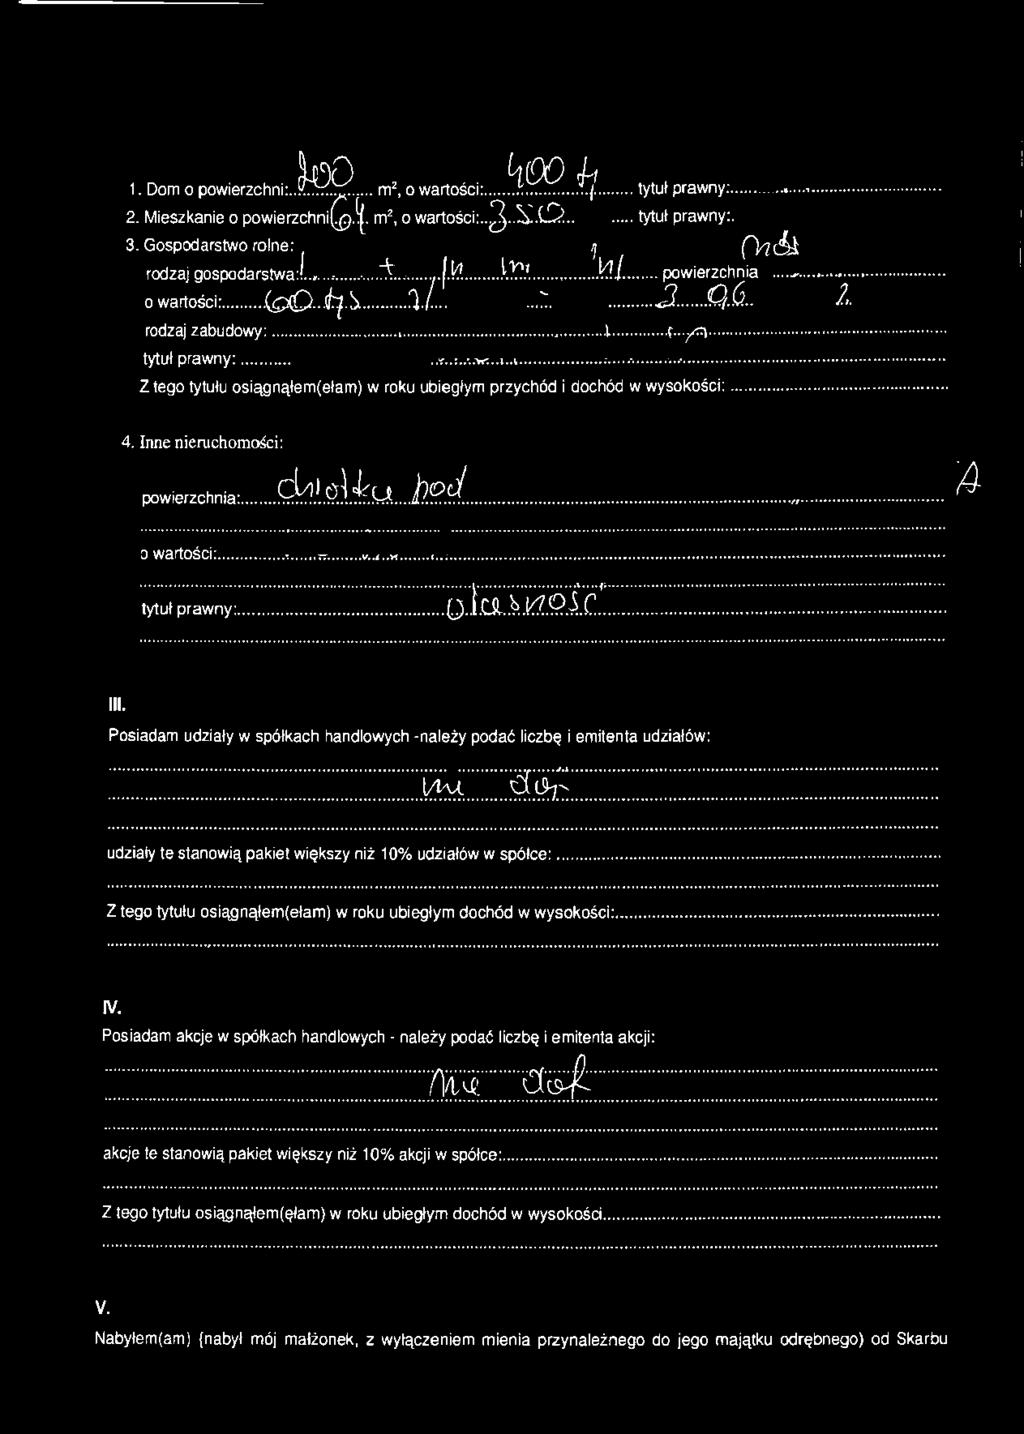 1. Dom o powierzchni: 200 m², o wartości: 400 tytuł prawny:
2. Mieszkanie o powierzchni 64 m², o wartości: 350 tytuł prawny:.
3. Gospodarstwo rolne:
rodzaj gospodarstwa: powierzchnia
o wartości: 60 tys
rodzaj zabudowy:
tytuł prawny:
Z tego tytułu osiągnąłem(ełam) w roku ubiegłym przychód i dochód w wysokości:
4. Inne nieruchomości:
powierzchnia: działka pod
o wartości:
tytuł prawny:
III.
Posiadam udziały w spółkach handlowych -należy podać liczbę i emitenta udziałów:
udziały te stanowią pakiet większy niż 10% udziałów w spółce:
Z tego tytułu osiągnąłem(ełam) w roku ubiegłym dochód w wysokości:
IV.
Posiadam akcje w spółkach handlowych - należy podać liczbę i emitenta akcji:
akcje te stanowią pakiet większy niż 10% akcji w spółce:
Z tego tytułu osiągnąłem(ęłam) w roku ubiegłym dochód w wysokości
V.
Nabyłem(am) {nabył mój małżonek, z wyłączeniem mienia przynależnego do jego majątku odrębnego) od Skarbu